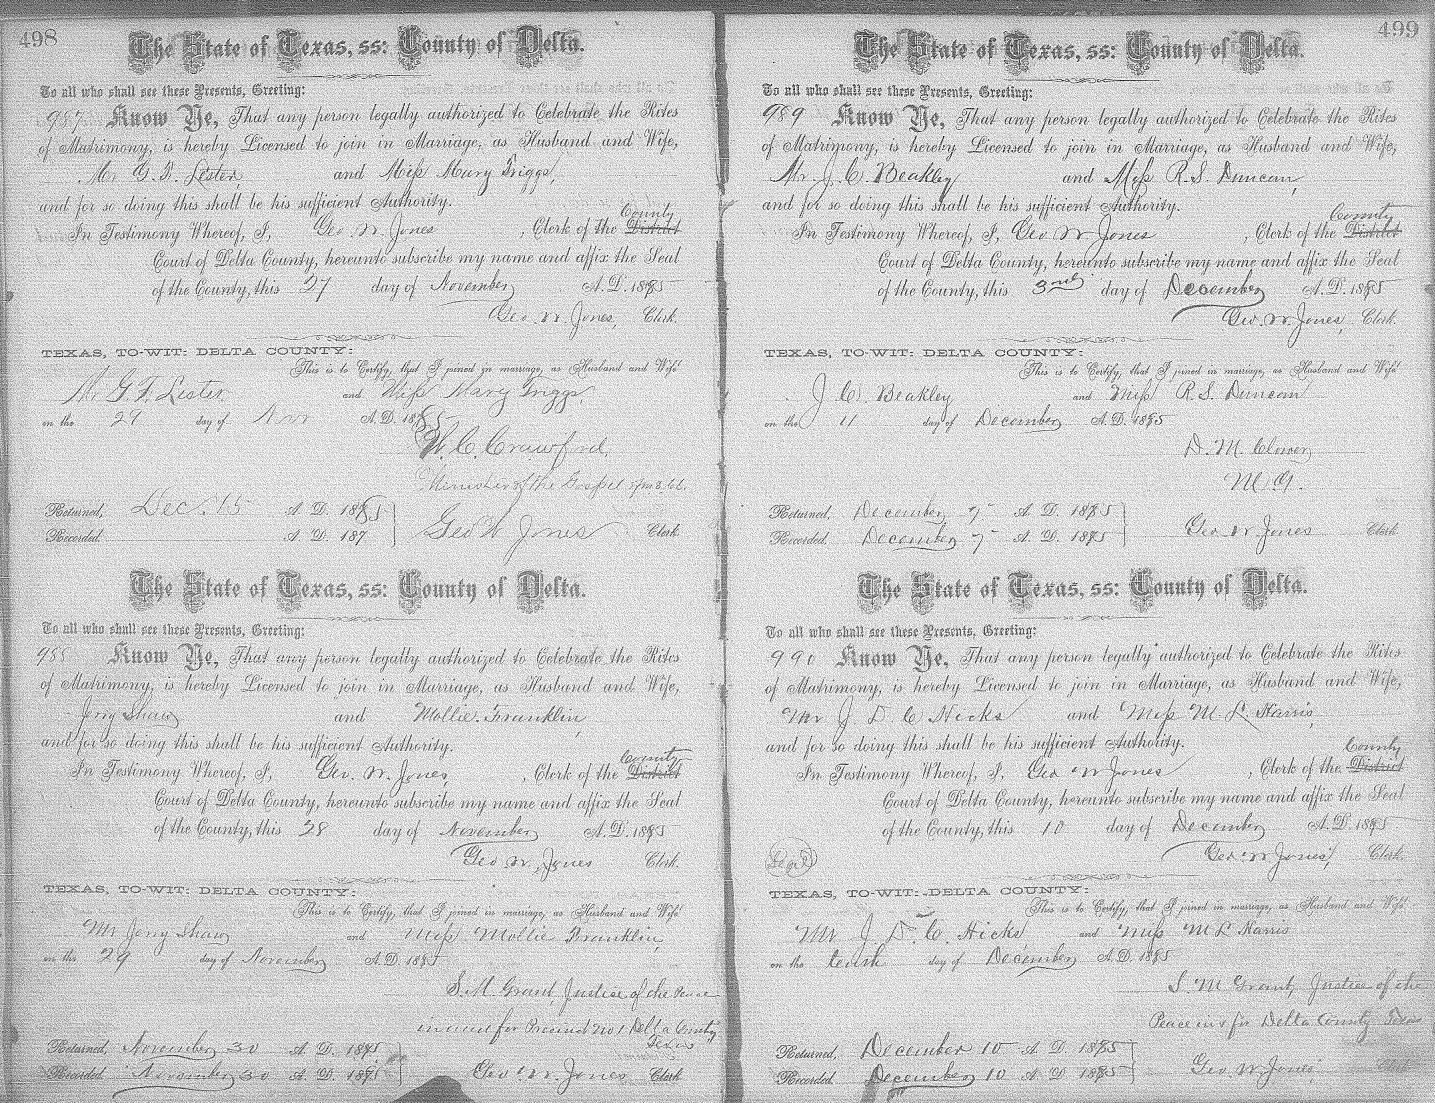 498
The State of Texas, ss: County of Delta.
To all who shall see these Presents, Greeting:
987 Know Ye, That any person legally authorized to Celebrate the Rites
of Matrimony, is hereby Licensed to join in Marriage, as Husband and Wife,
Mr G. F. Lester and Miss Mary Griggs,
and for so doing this shall be his sufficient Authority.
County
In Testimony Whereof, I, Geo W. Jones, Clerk of the District
Court of Delta County, hereunto subscribe my name and affix the Seal
of the County, this 27 day of November A. D. 1885
Geo. W. Jones, Clerk.
TEXAS, TO-WIT: DELTA COUNTY:
This is to Certify, that I joined in marriage, as Husband and Wife
Mr G. F. Lester and Miss Mary Griggs,
on the 29 day of Nov A. D. 1885
W. C. Crawford,
Minister of the Gospel
Returned, Dec. 15 A. D. 1885
Recorded. A. D. 187
Geo W Jones Clerk
The State of Texas, ss: County of Delta.
To all who shall see these Presents, Greeting:
988 Know Ye, That any person legally authorized to Celebrate the Rites
of Matrimony, is hereby Licensed to join in Marriage, as Husband and Wife,
Jery Shaw and Mollie Franklin,
and for so doing this shall be his sufficient Authority.
County
In Testimony Whereof, I, Geo. W. Jones, Clerk of the District
Court of Delta County, hereunto subscribe my name and affix the Seal
of the County, this 28 day of November A. D. 1885
Geo W. Jones Clerk.
TEXAS, TO-WIT: DELTA COUNTY:
This is to Certify, that I joined in marriage, as Husband and Wife
Mr Jery Shaw and Miss Mollie Franklin,
on the 29 day of November A. D. 1885
S. M Grant, Justice of the Peace
in and for Precinct no 1 Delta County
Texas
Returned, November 30 A. D. 1885
Recorded. November 30 A. D. 1885
Geo. W. Jones Clerk
499
The State of Texas, ss: County of Delta.
To all who shall see these Presents, Greeting:
989 Know Ye, That any person legally authorized to Celebrate the Rites
of Matrimony, is hereby Licensed to join in Marriage, as Husband and Wife,
Mr. J. C. Beakley and Miss R. S. Duncan,
and for so doing this shall be his sufficient Authority.
County
In Testimony Whereof, I, Geo W. Jones, Clerk of the District
Court of Delta County, hereunto subscribe my name and affix the Seal
of the County, this 3rd day of December A. D. 1885
Geo. W. Jones, Clerk.
TEXAS, TO-WIT: DELTA COUNTY:
This is to Certify, that I joined in marriage, as Husband and Wife
J. C. Beakley and Miss R. S. Duncan
on the 11 day of December A. D. 1885
D. M. Clower,
M G.
Returned, December 7 A. D. 1885
Recorded. December 7 A. D. 1885
Geo W. Jones Clerk
The State of Texas, ss: County of Delta.
To all who shall see these Presents, Greeting:
990 Know Ye, That any person legally authorized to Celebrate the Rites
of Matrimony, is hereby Licensed to join in Marriage, as Husband and Wife,
Mr J. D. C Hicks and Miss M L. Harris,
and for so doing this shall be his sufficient Authority.
County
In Testimony Whereof, I, Geo W Jones, Clerk of the District
Court of Delta County, hereunto subscribe my name and affix the Seal
of the County, this 10 day of December A. D. 1885
Geo. W Jones, Clerk.
TEXAS, TO-WIT: DELTA COUNTY:
This is to Certify, that I joined in marriage, as Husband and Wife
Mr J D. C. Hicks and Miss M L Harris
on the tenth day of December A. D. 1885
S. M Grant, Justice of the
Peace in & for Delta County Texas
Returned, December 10 A. D. 1885
Recorded. December 10 A. D. 1885
Geo W. Jones, Clerk